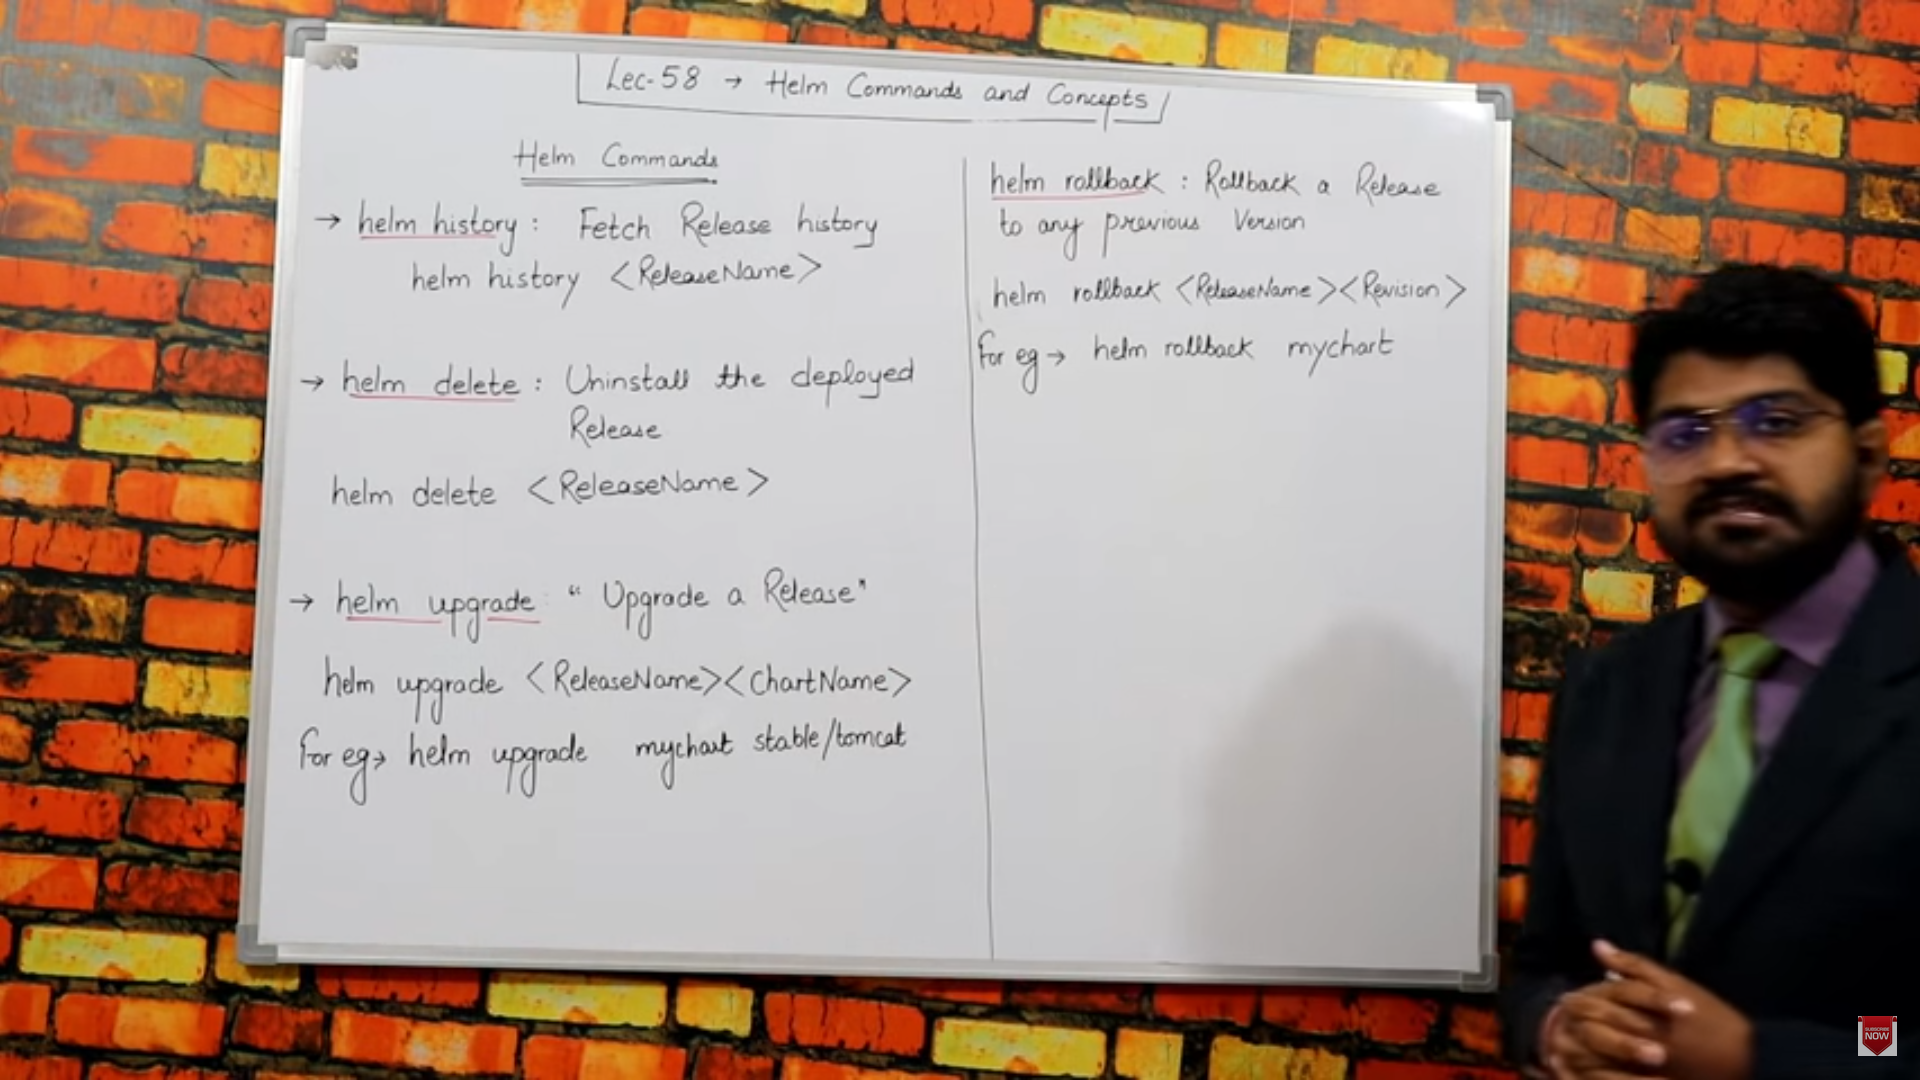 Lec-58 → Helm Commands and Concepts
Helm Commands
→ helm history : Fetch Release history
helm history <ReleaseName>
→ helm delete : Uninstall the deployed
Release
helm delete <ReleaseName>
→ helm upgrade : "Upgrade a Release"
helm upgrade <ReleaseName><ChartName>
For eg→ helm upgrade mychart stable/tomcat
helm rollback : Rollback a Release
to any previous Version
helm rollback <ReleaseName><Revision>
For eg → helm rollback mychart
SUBSCRIBE
NOW